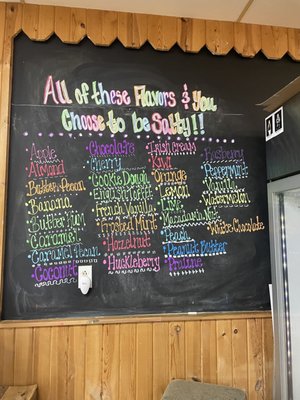 All of these Flavors & You
Choose to be Salty!!
Apple
Almond
Butter Pecan
Banana
Butter
Caramel
Caramel Pecan
Coconut
Chocolate
Cherry
Cookie Dough
English Toffee
French Vanilla
Frosted Mint
Hazelnut
Huckleberry
Irish Cream
Kiwi
Orange
Lemon
Lime
Macadamia Nut
Peach
Peanut Butter
Praline
Raspberry
Peppermint
Watermelon
White Chocolate